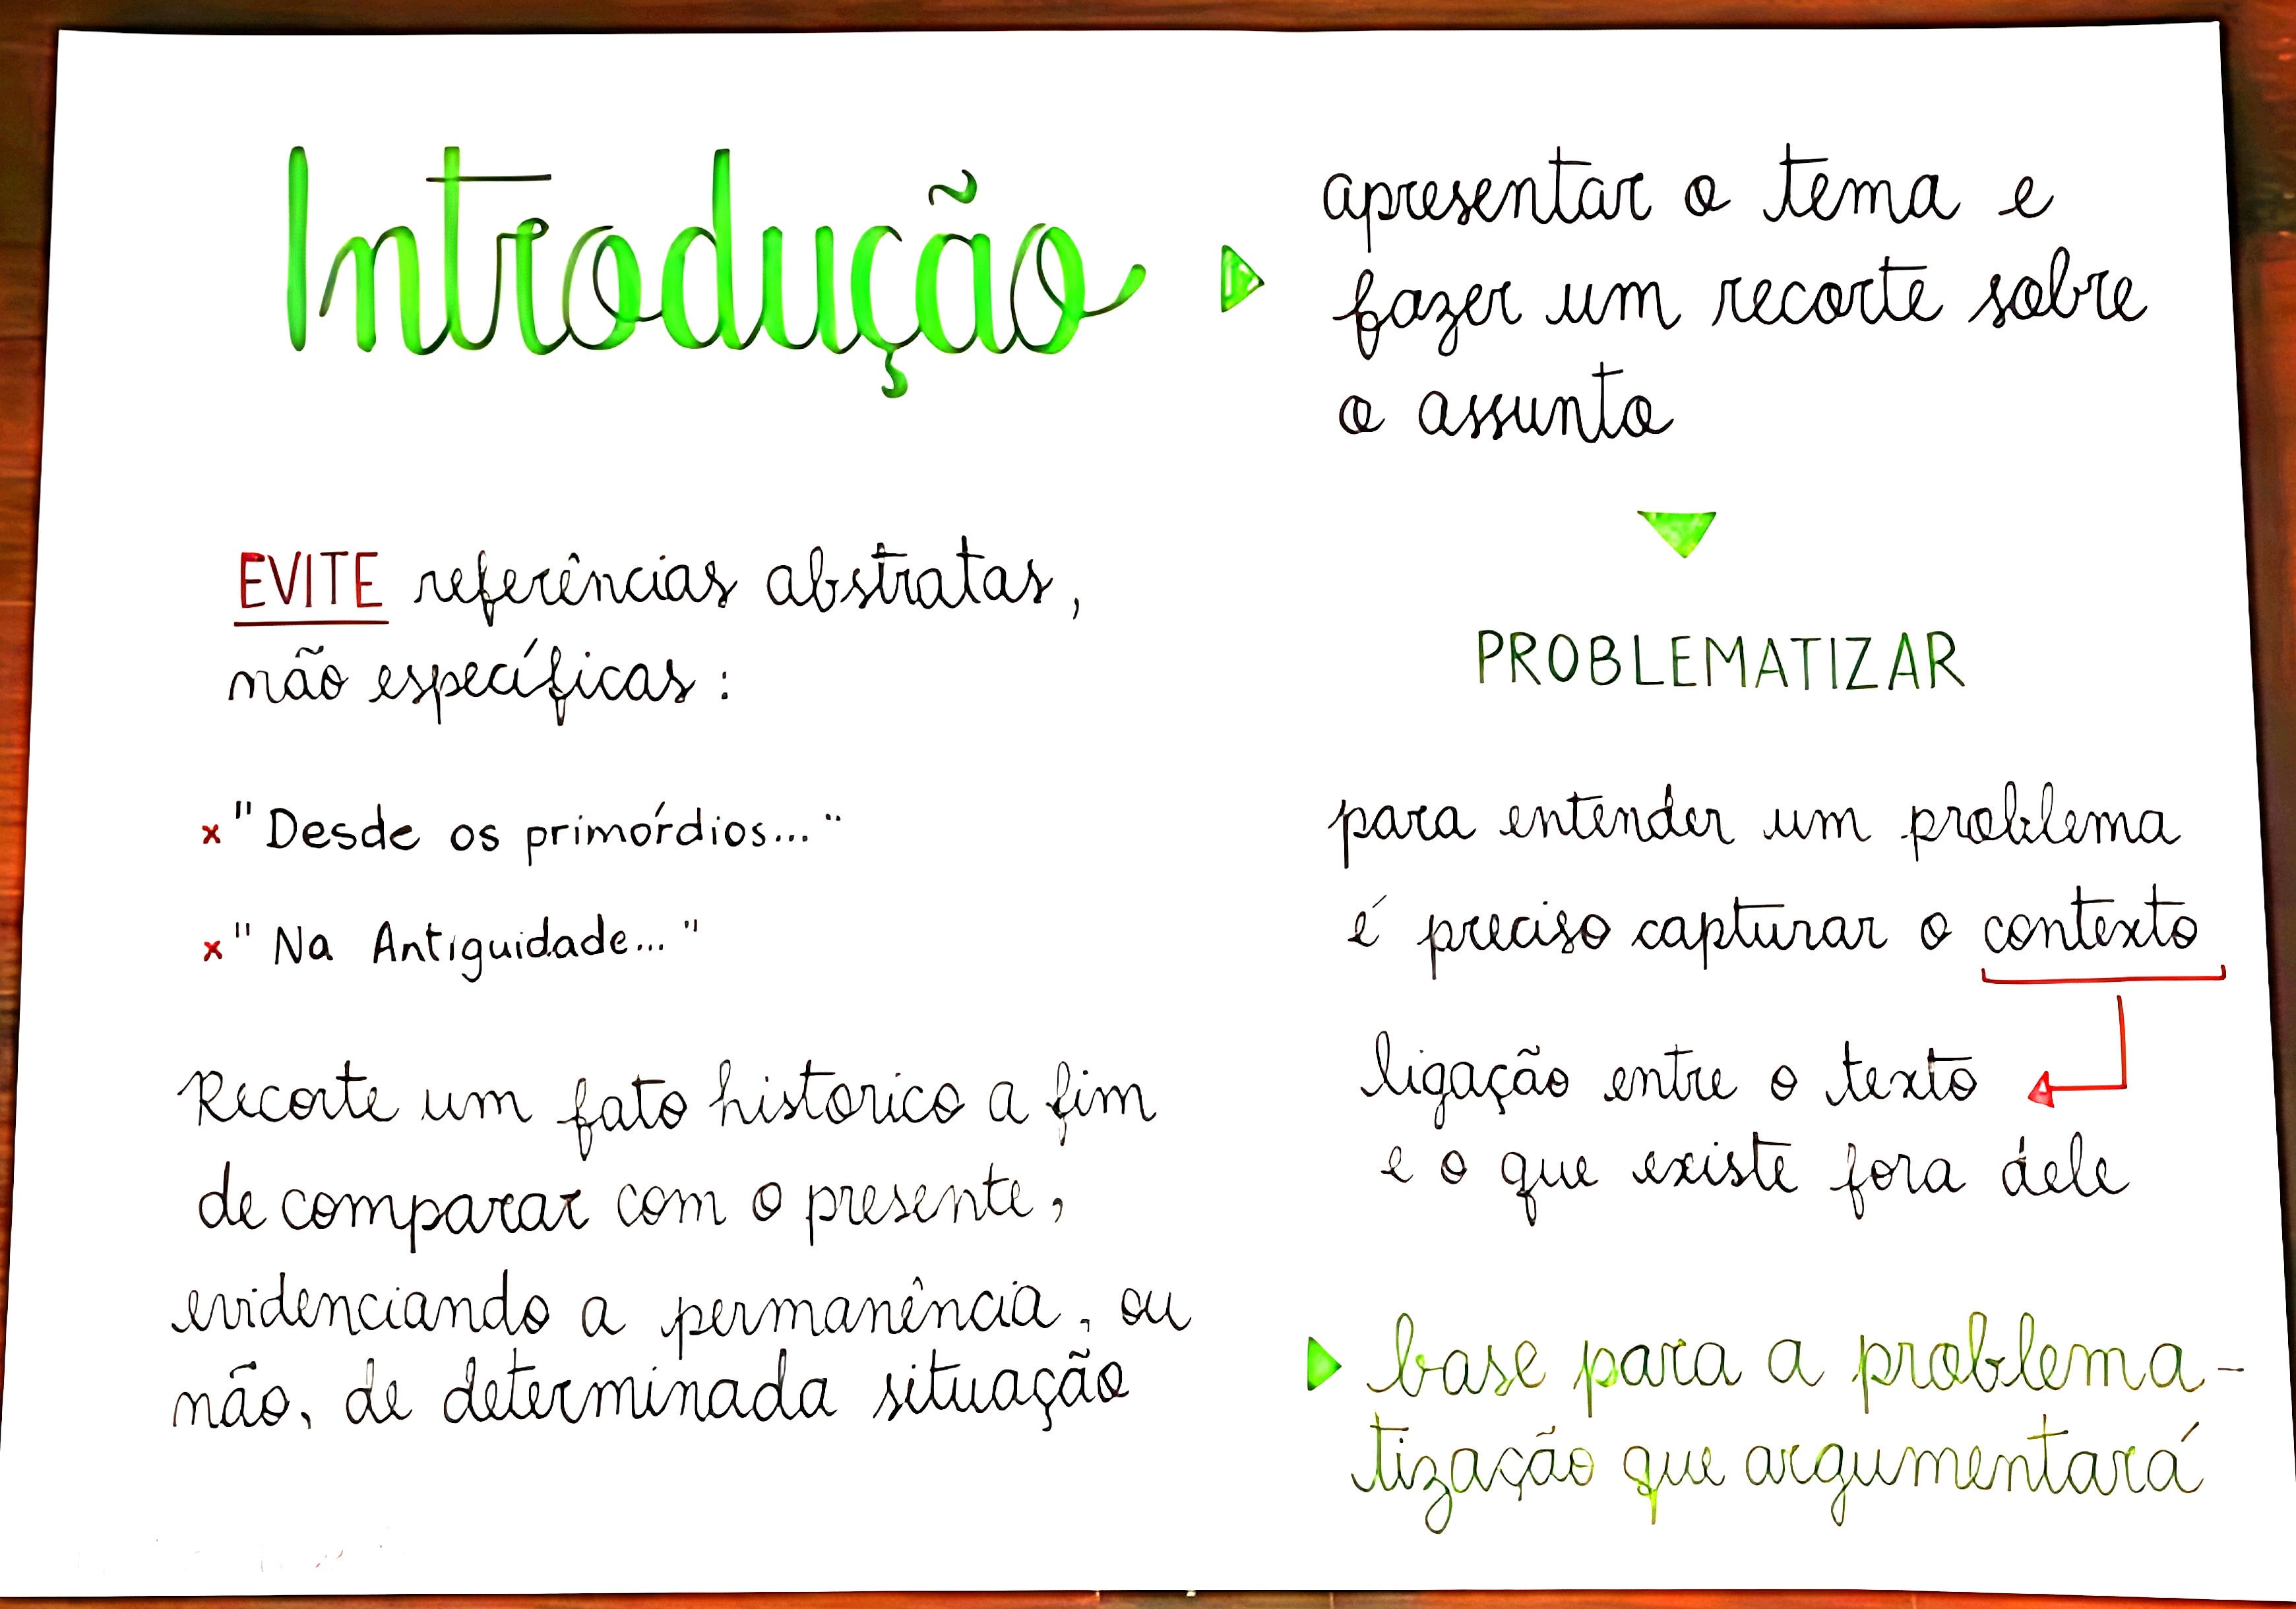 Introdução
apresentar o tema e
fazer um recorte sobre
o assunto
EVITE referências abstratas,
não específicas:
x "Desde os primórdios..."
x "Na Antiguidade..."
Recorte um fato historico a fim
de comparar com o presente,
evidenciando a permanência, ou
não, de determinada situação
PROBLEMATIZAR
para entender um problema
é preciso capturar o contexto
ligação entre o texto
e o que existe fora dele
base para a problema-
tização que argumentará